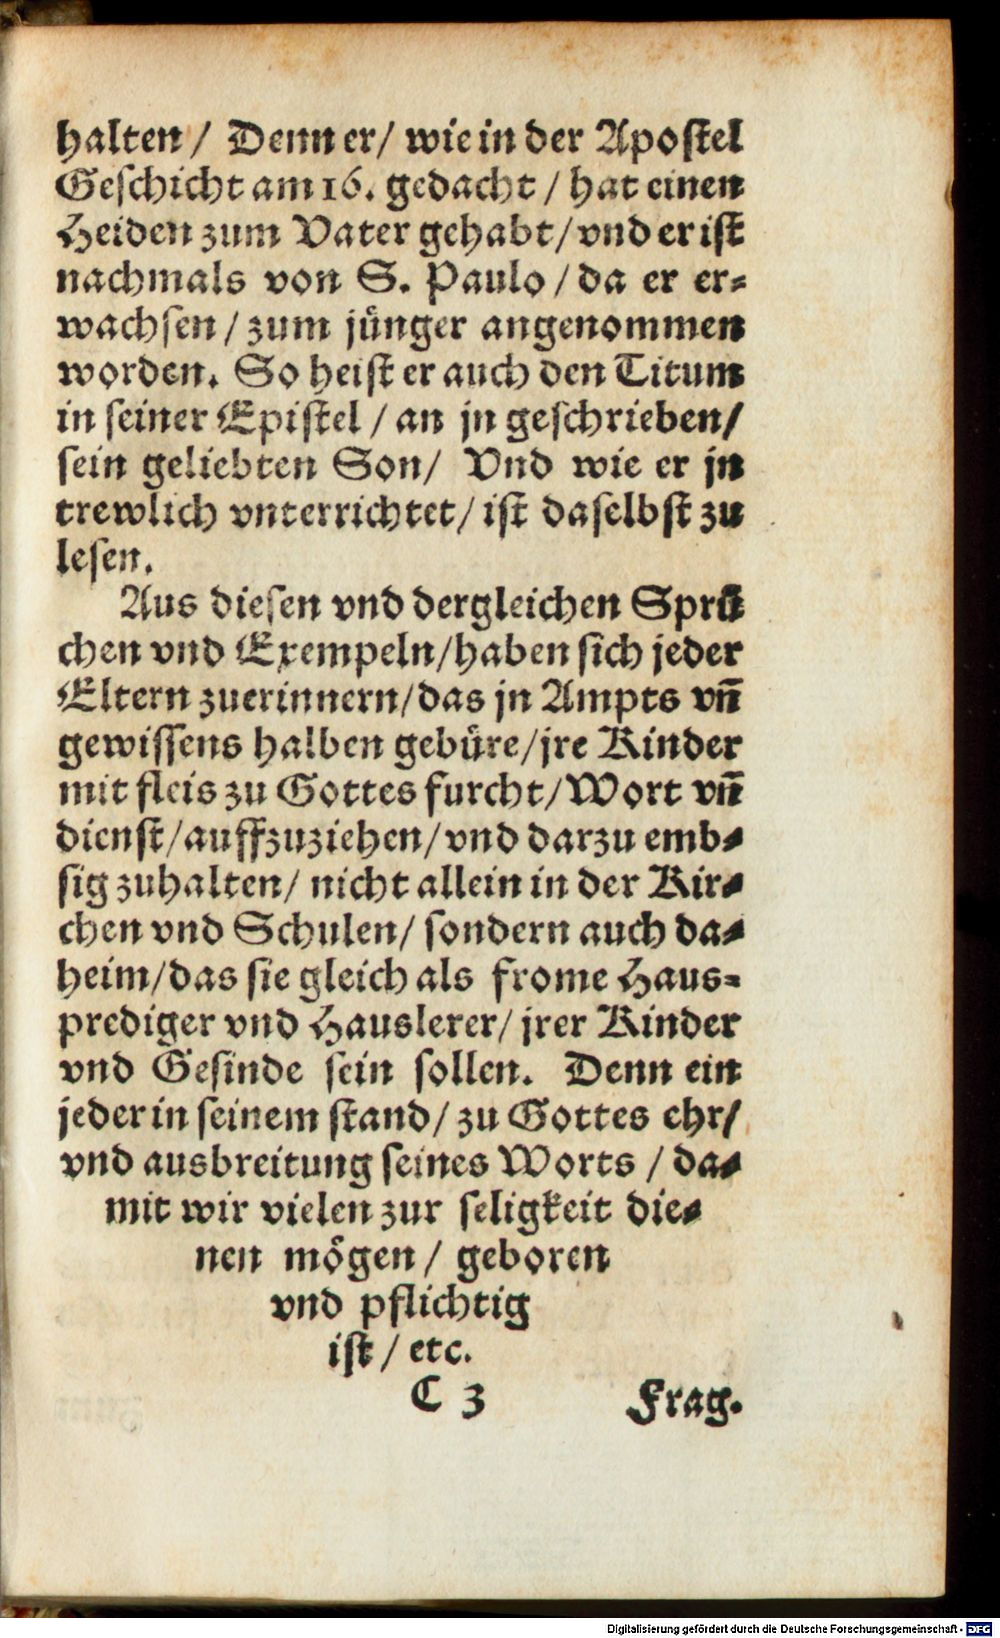 halten / Denn er / wie in der Apostel
Geschicht am 16. gedacht / hat einen
Heiden zum Vater gehabt / vnd er ist
nachmals von S. Paulo / da er er-
wachsen / zum jünger angenommen
worden. So heist er auch den Titum
in seiner Epistel / an jn geschrieben /
sein geliebten Son / Vnd wie er jn
trewlich vnterrichtet / ist daselbst zu
lesen.
Aus diesen vnd dergleichen Sprü
chen vnd Exempeln / haben sich jeder
Eltern zuerinnern / das jn Ampts vñ
gewissens halben gebüre / jre Kinder
mit fleis zu Gottes furcht / Wort vñ
dienst / auffzuziehen / vnd darzu emb-
sig zuhalten / nicht allein in der Kir-
chen vnd Schulen / sondern auch da-
heim / das sie gleich als frome Haus-
prediger vnd Hauslerer / jrer Kinder
vnd Gesinde sein sollen. Denn ein
jeder in seinem stand / zu Gottes ehr /
vnd ausbreitung seines Worts / da-
mit wir vielen zur seligkeit die-
nen mögen / geboren
vnd pflichtig
ist / etc.
C 3 Frag.
Digitalisierung gefördert durch die Deutsche Forschungsgemeinschaft - DFG